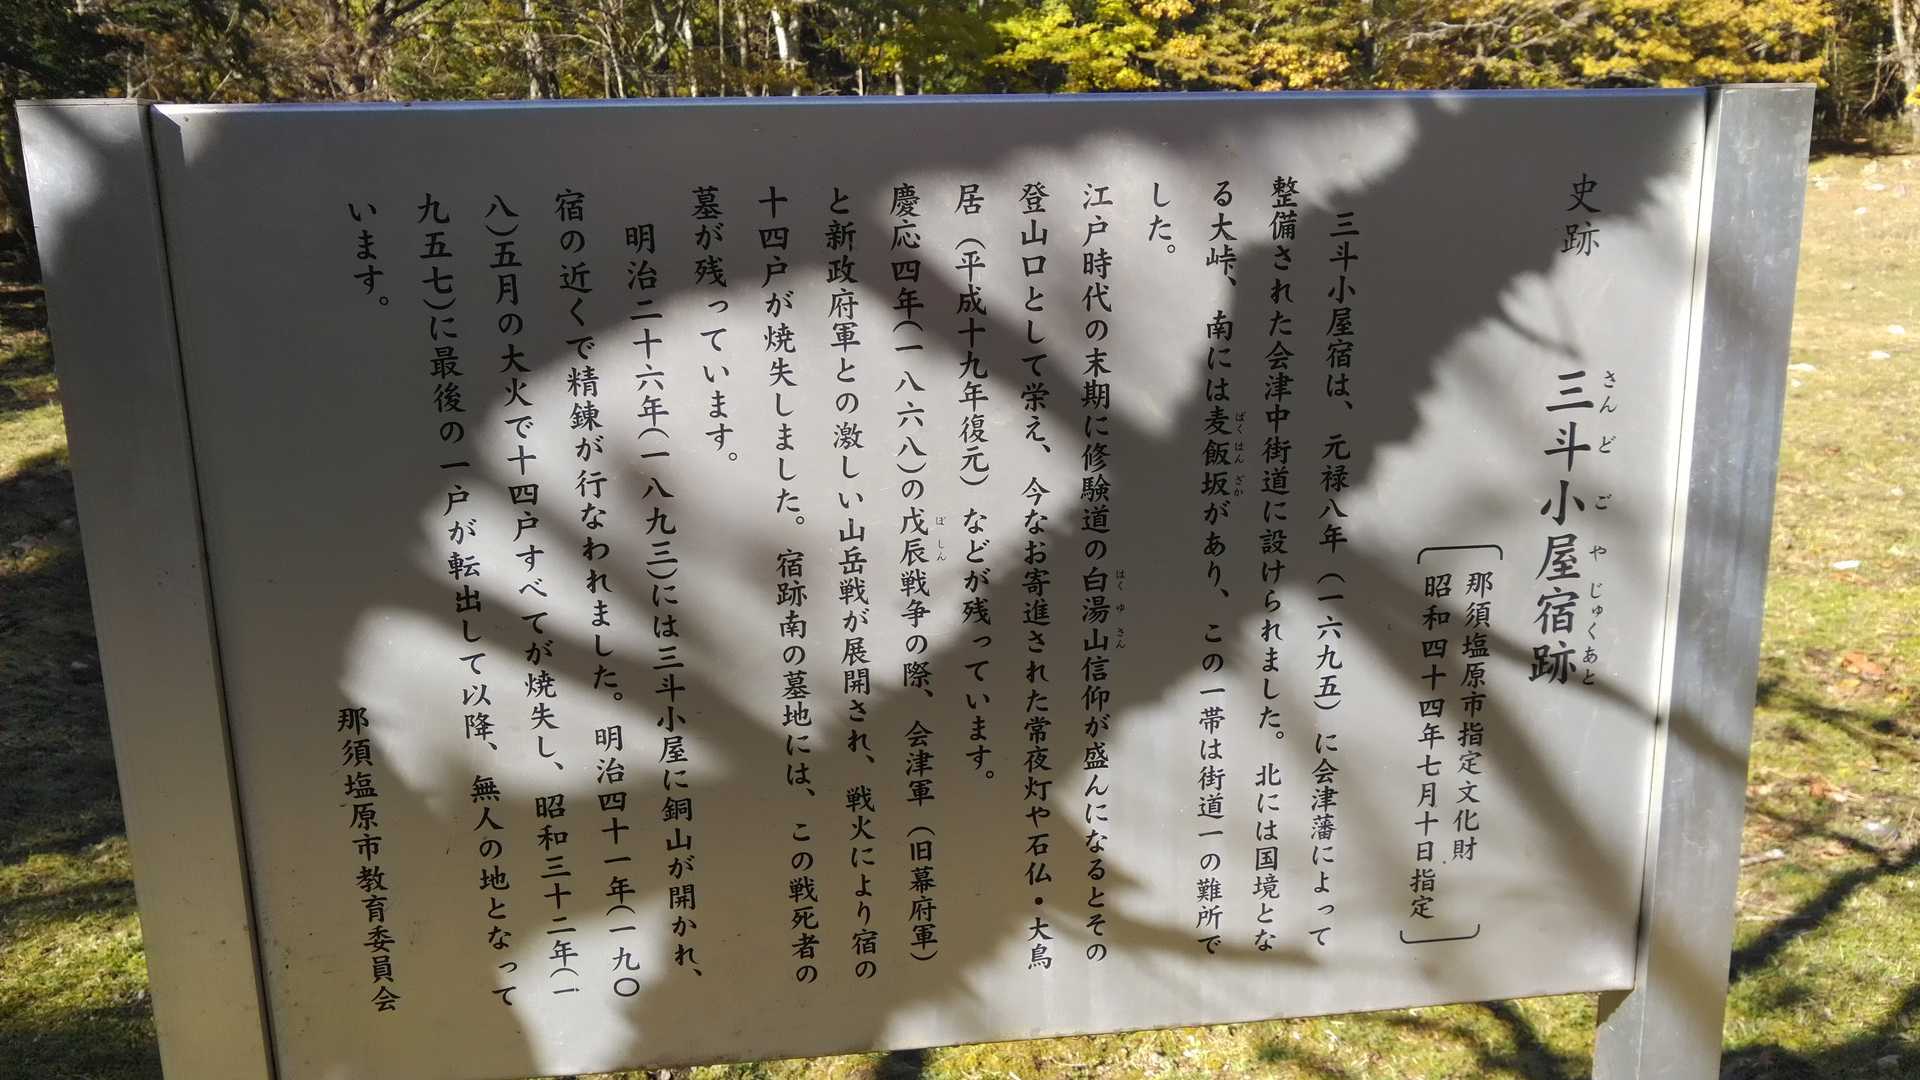 史跡　三斗小屋宿跡
さんどごやじゅくあと
那須塩原市指定文化財
昭和四十四年七月十日指定
三斗小屋宿は、元禄八年（一六九五）に会津藩によって
整備された会津中街道に設けられました。北には国境とな
る大峠、南には麦飯坂があり、この一帯は街道一の難所で
ばくはんざか
した。
江戸時代の末期に修験道の白湯山信仰が盛んになるとその
はくゆさん
登山口として栄え、今なお寄進された常夜灯や石仏・大鳥
居（平成十九年復元）などが残っています。
慶応四年（一八六八）の戊辰戦争の際、会津軍（旧幕府軍）
ぼしん
と新政府軍との激しい山岳戦が展開され、戦火により宿の
十四戸が焼失しました。宿跡南の墓地には、この戦死者の
墓が残っています。
明治二十六年（一八九三）には三斗小屋に銅山が開かれ、
宿の近くで精錬が行なわれました。明治四十一年（一九〇
八）五月の大火で十四戸すべてが焼失し、昭和三十二年（一
九五七）に最後の一戸が転出して以降、無人の地となって
います。
那須塩原市教育委員会